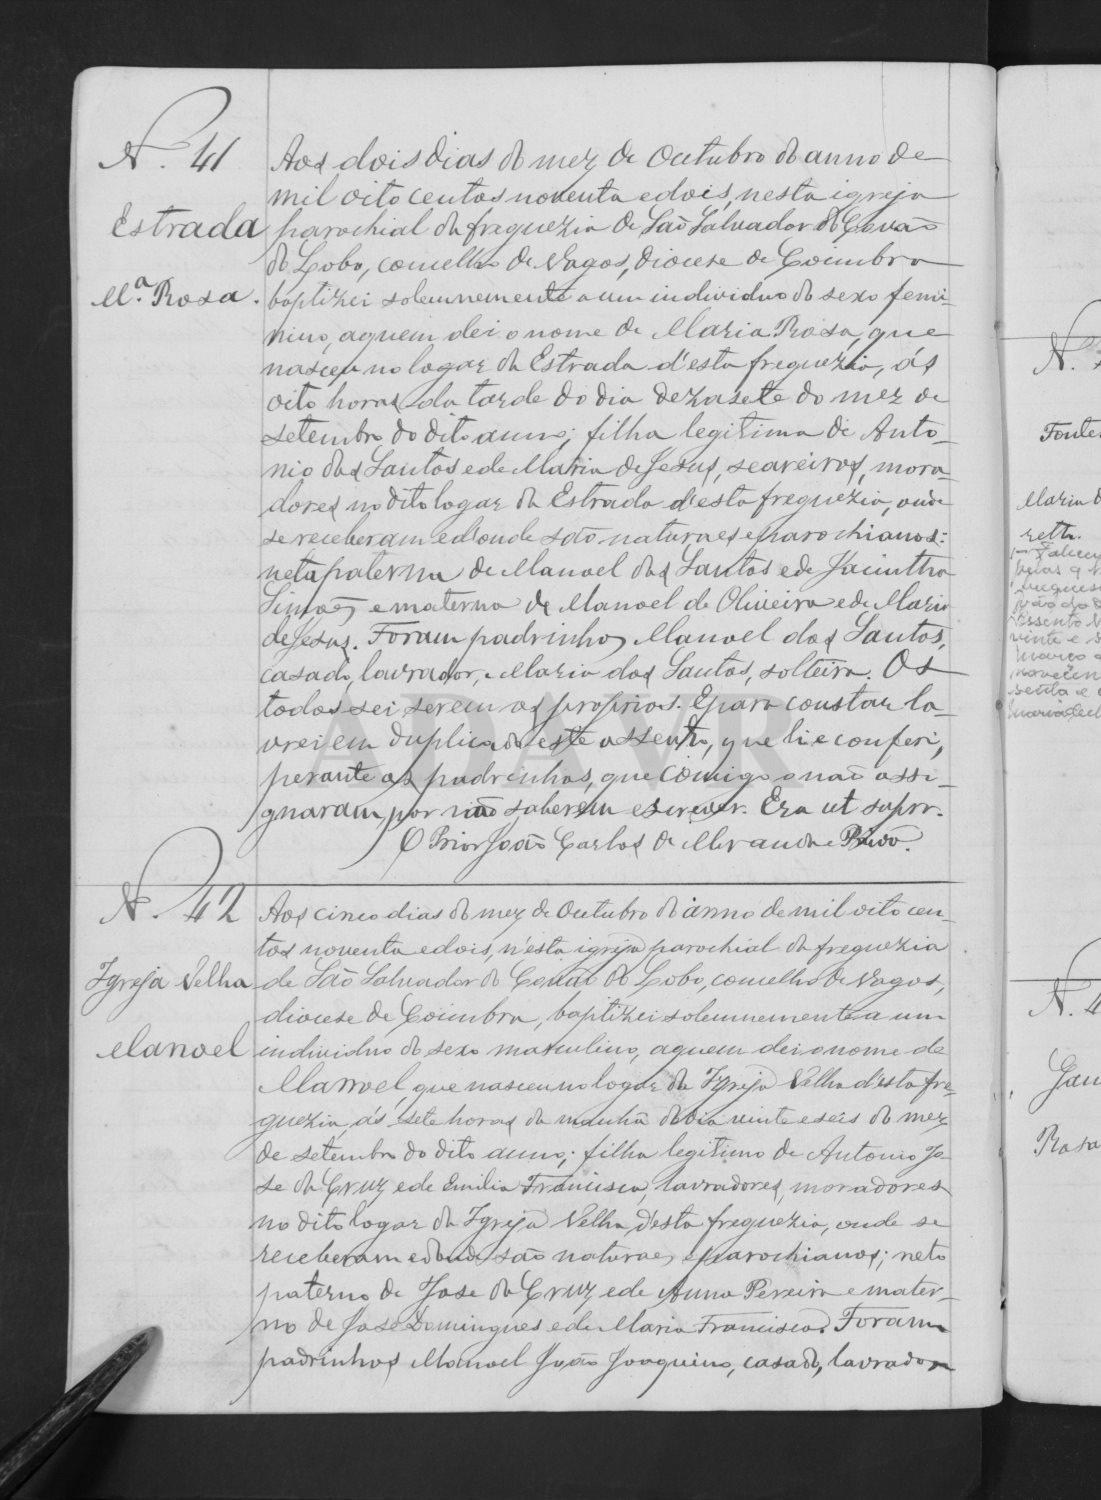 N.º 41
Estrada
M.ª Rosa.
Aos dois dias do mez de Outubro do anno de
mil oito centos noventa e dois, nesta igreja
parochial da freguezia de São Salvador do Covão
do Lobo, concelho de Vagos, diocese de Coimbra
baptizei solemnemente a um individuo do sexo femi-
nino, a quem dei o nome de Maria Rosa, que
nasceu no logar da Estrada d'esta freguezia, ás
oito horas da tarde do dia dezasete do mez de
setembro do dito anno; filha legitima de Anto-
nio dos Santos e de Maria de Jesus, seareiros, mora-
dores no dito logar da Estrada d'esta freguezia, onde
se receberam e d'onde são naturaes e parochianos:
neta paterna de Manoel dos Santos e de Jacintha
Simões e materna de Manoel de Oliveira e de Maria
de Jesus. Foram padrinhos Manoel dos Santos,
casado, lavrador, Maria dos Santos, solteira. Os
todos sei serem os proprios. E para constar la-
vrei em duplicado este assento, que li e conferi,
perante os padrinhos, que comigo o não assi-
gnaram, por não saberem escrever. Era ut supra.
O Prior João Carlos de Miranda
N.º 42
Igreja Velha
Manoel
Aos cinco dias do mez de Outubro do anno de mil oito cen-
tos noventa e dois, n'esta igreja parochial da freguezia
de São Salvador do Covão do Lobo, concelho de Vagos,
diocese de Coimbra, baptizei solemnemente a um
individuo do sexo masculino, a quem dei o nome de
Manoel, que nasceu no logar da Igreja Velha d'esta fre-
guezia, ás sete horas da manhã do dia vinte e seis do mez
de setembro do dito anno; filho legitimo de Antonio Jo-
se da Cruz e de Emilia Francisca, lavradores, moradores
no dito logar da Igreja Velha, d'esta freguezia, onde se
receberam e donde são naturaes e parochianos; neto
paterno de Jose da Cruz e de Anna Pereira e mater-
no de José Domingues e de Maria Francisca. Foram
padrinhos Manoel João Joaquim, casado, lavrador
ADAVR
N.
Maria
reth.
N. 4
Rosa